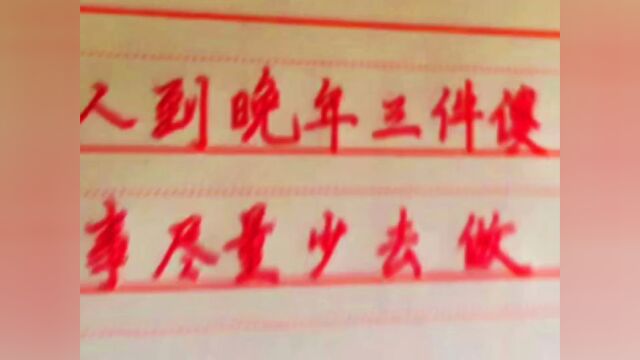 人到晚年三件傻
事尽量少去做